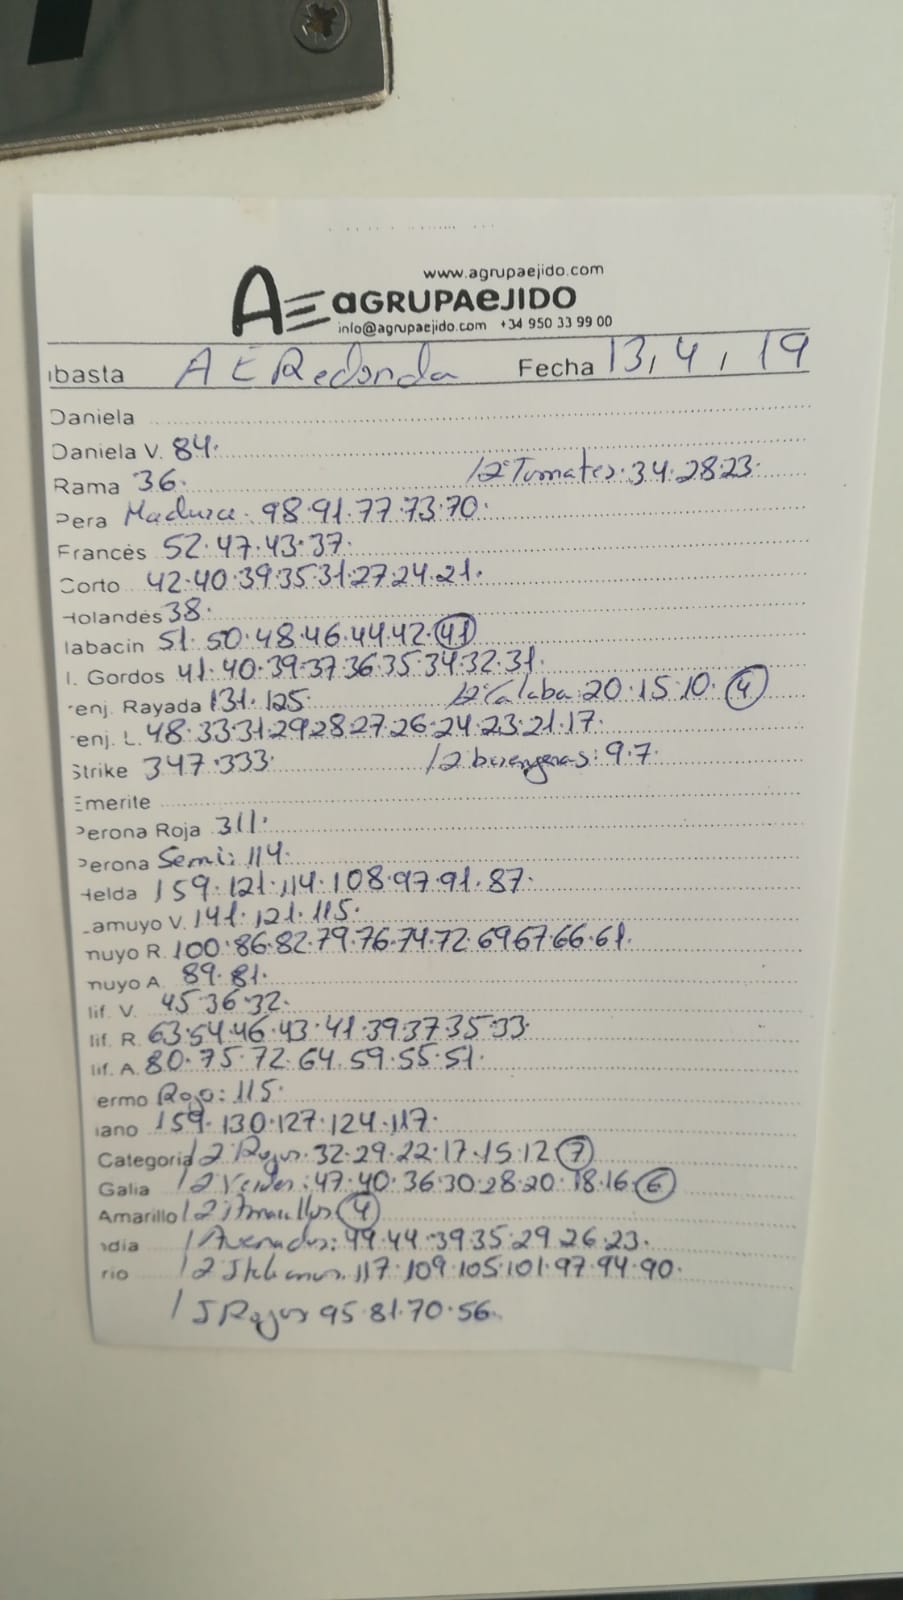 www.agrupaejido.com
AE AGRUPAEJIDO
info@agrupaejido.com +34 950 33 99 00
ubasta A E Redonda Fecha 13, 4, 19
Daniela
Daniela V. 84.
Rama 36. 1/2ª Tomates. 34. 28. 23.
Pera Madura. 98. 91. 77. 73. 70.
Francés 52. 47. 43. 37.
Corto 42. 40. 39. 35. 31. 27. 24. 21.
Holandés 38.
labacin 51. 50. 48. 46. 44. 42. 41
l. Gordos 41. 40. 39. 37. 36. 35. 34. 32. 31.
renj. Rayada 131. 125. 1/2ª Calaba: 20. 15. 10. 4
renj. L. 48. 33. 31. 29. 28. 27. 26. 24. 23. 21. 17.
Strike 347. 333. 1/2 berengenas: 9. 7.
Emerite
Perona Roja 311.
Perona Semi: 114.
Helda 159. 121. 114. 108. 97. 91. 87.
Lamuyo V. 141. 121. 115.
muyo R. 100. 86. 82. 79. 76. 74. 72. 69. 67. 66. 61.
muyo A. 89. 81.
lif. V. 45. 36. 32.
lif. R. 63. 54. 46. 43. 41. 39. 37. 35. 33.
lif. A. 80. 75. 72. 64. 59. 55. 51.
ermo Rojo: 115.
iano 159. 130. 127. 124. 117.
Categoria 12 Rojos. 32. 29. 22. 17. 15. 12 7
Galia 12 Verdes: 47. 40. 36. 30. 28. 20. 18. 16. 6
Amarillo 12 Amarillos 4
ndia 1 Asurados: 49. 44. 39. 35. 29. 26. 23.
rio 12 117. 109. 105. 101. 97. 94. 90.
1 J Rojos 95. 81. 70. 56.